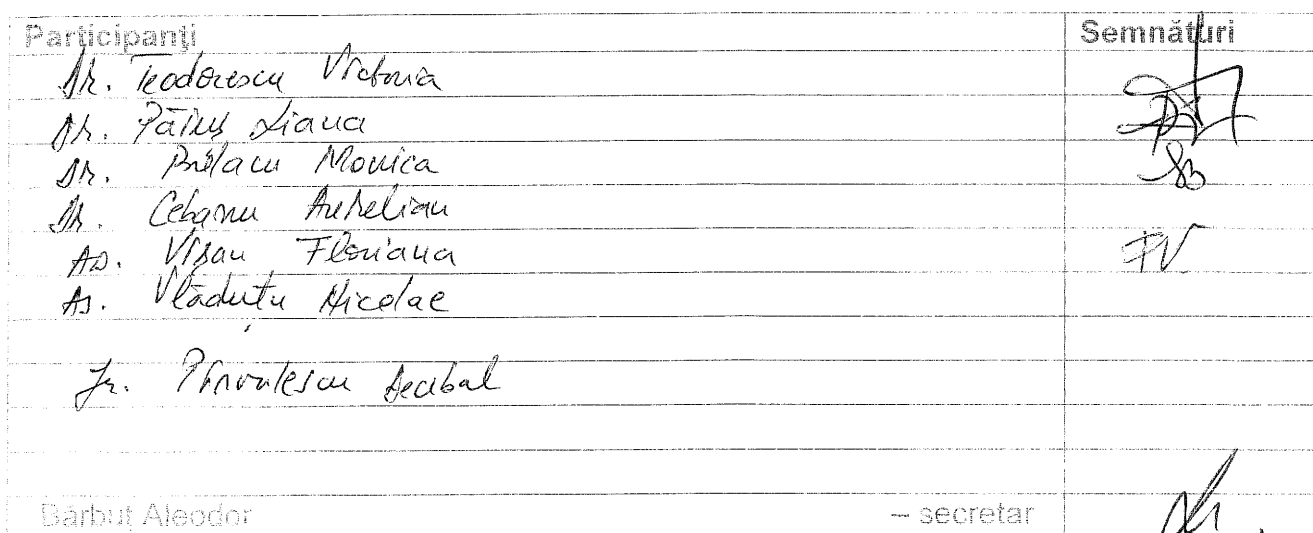 Participanţi Semnături
Dr. Teodorescu Victoria
Dr. Păiuş Liana
Dr. Monica
Dr. Cebanu Aurelian
As. Vişan Floriana FV
As. Vlăduţu Nicolae
Jr. Pîrvulescu Decebal
Bărbuţ Aleodor – secretar